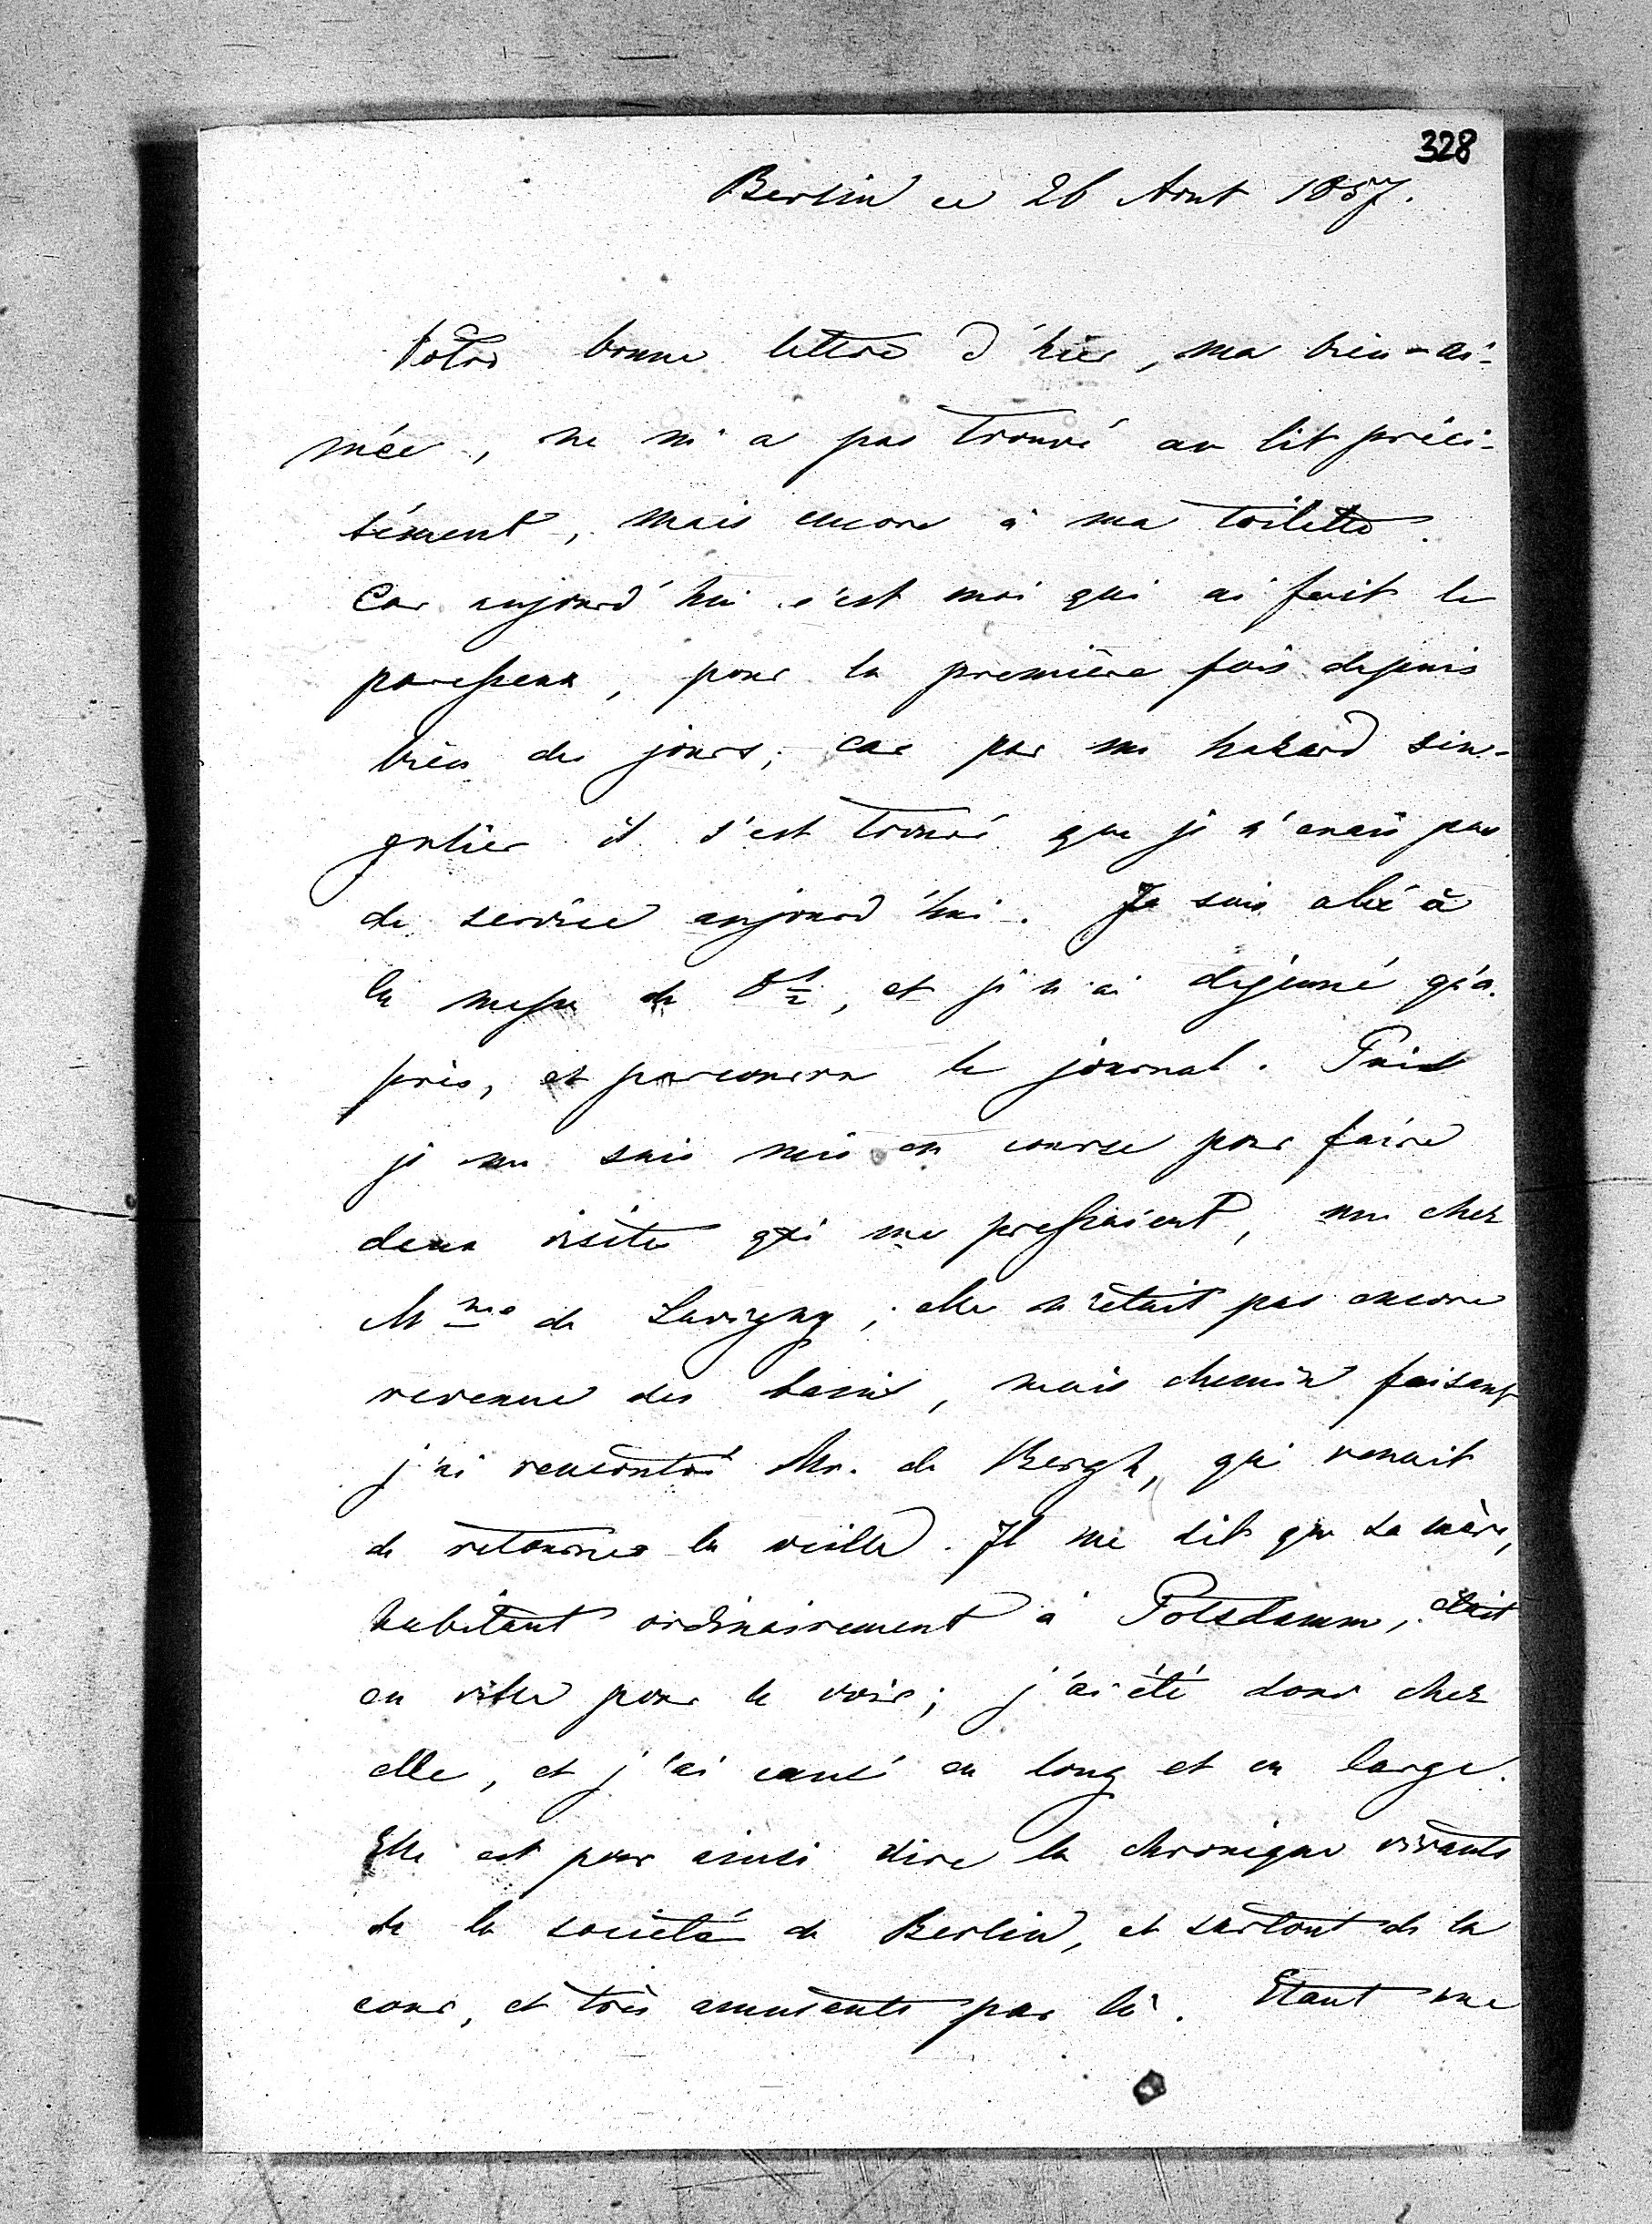 328
Berlin ce 26 Aout 1857.
Votre bonne lettre d'hier, ma bien-ai-
mée, ne m'a pas trouvé au lit préci-
sément, mais encore à ma toilette.
Car aujourd'hui c'est moi qui ai fait le
paresseux, pour la première fois depuis
bien des jours; car par un hazard sin-
gulier il s'est trouvé que je n'avais pas
de service aujourd'hui. Je suis allé à
la messe de 8 1/2, et je n'ai dejeuné qu'a-
près, et parcouru le journal. Puis
je me suis mis en course pour faire
deux visites qui me pressaient, une chez
Mme de Savigny; elle n'était pas encore
revenue des bains, mais chemin faisant
j'ai rencontré Mr. de Bergh, qui venait
de retourner la veille. Il me dit que sa mère,
habitant ordinairement à Potsdamm, était
en ville pour le voir; j'ai été donc chez
elle, et j'ai causé en long et en large.
Elle est pour ainsi dire la chronique vivante
de la société de Berlin, et surtout de la
cour, et très amusante par là. Etant une